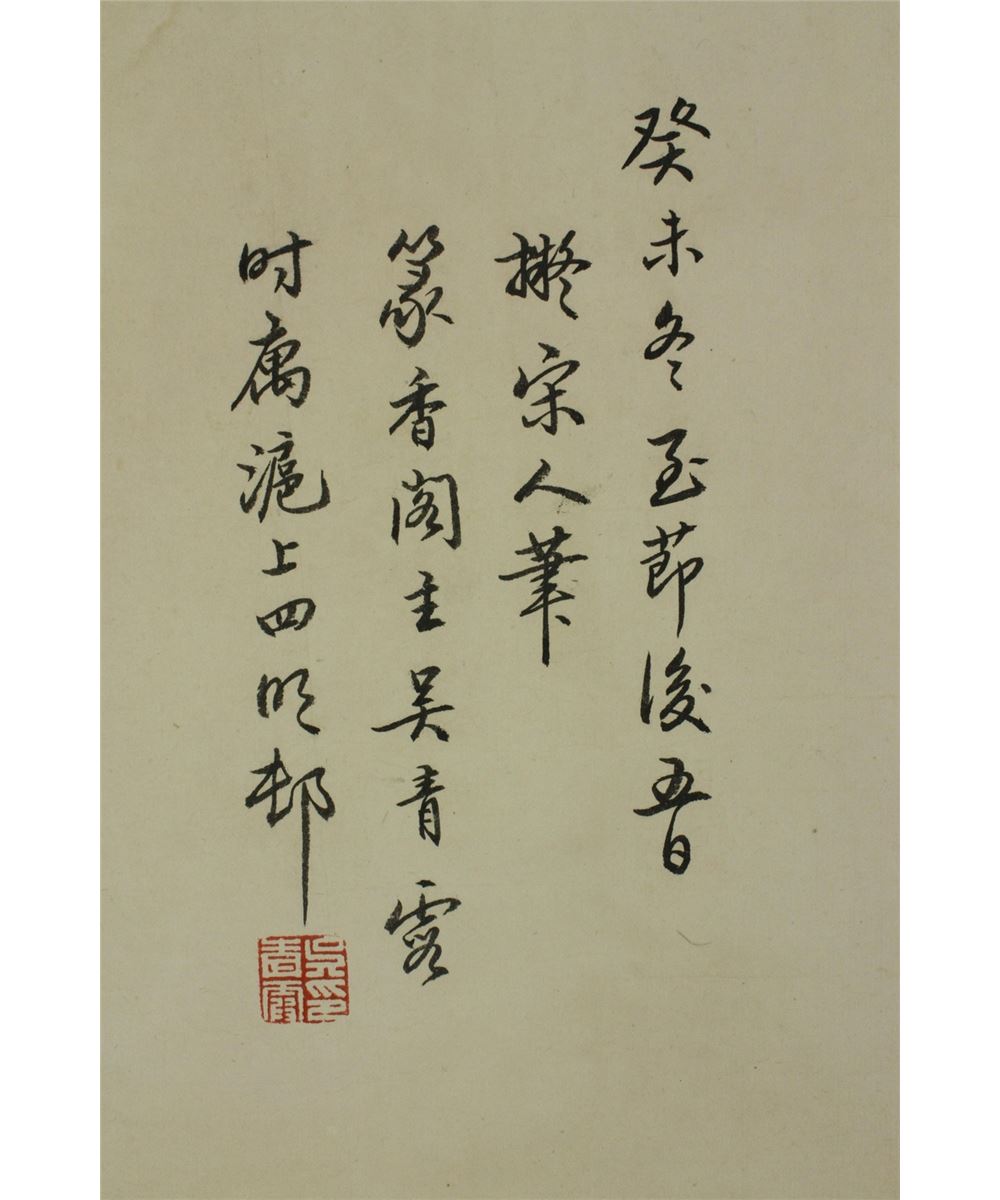 癸未冬至莭後五日
擬宋人筆
篆香閣主吴青霞
时庽滬上四明邨
吳印青霞